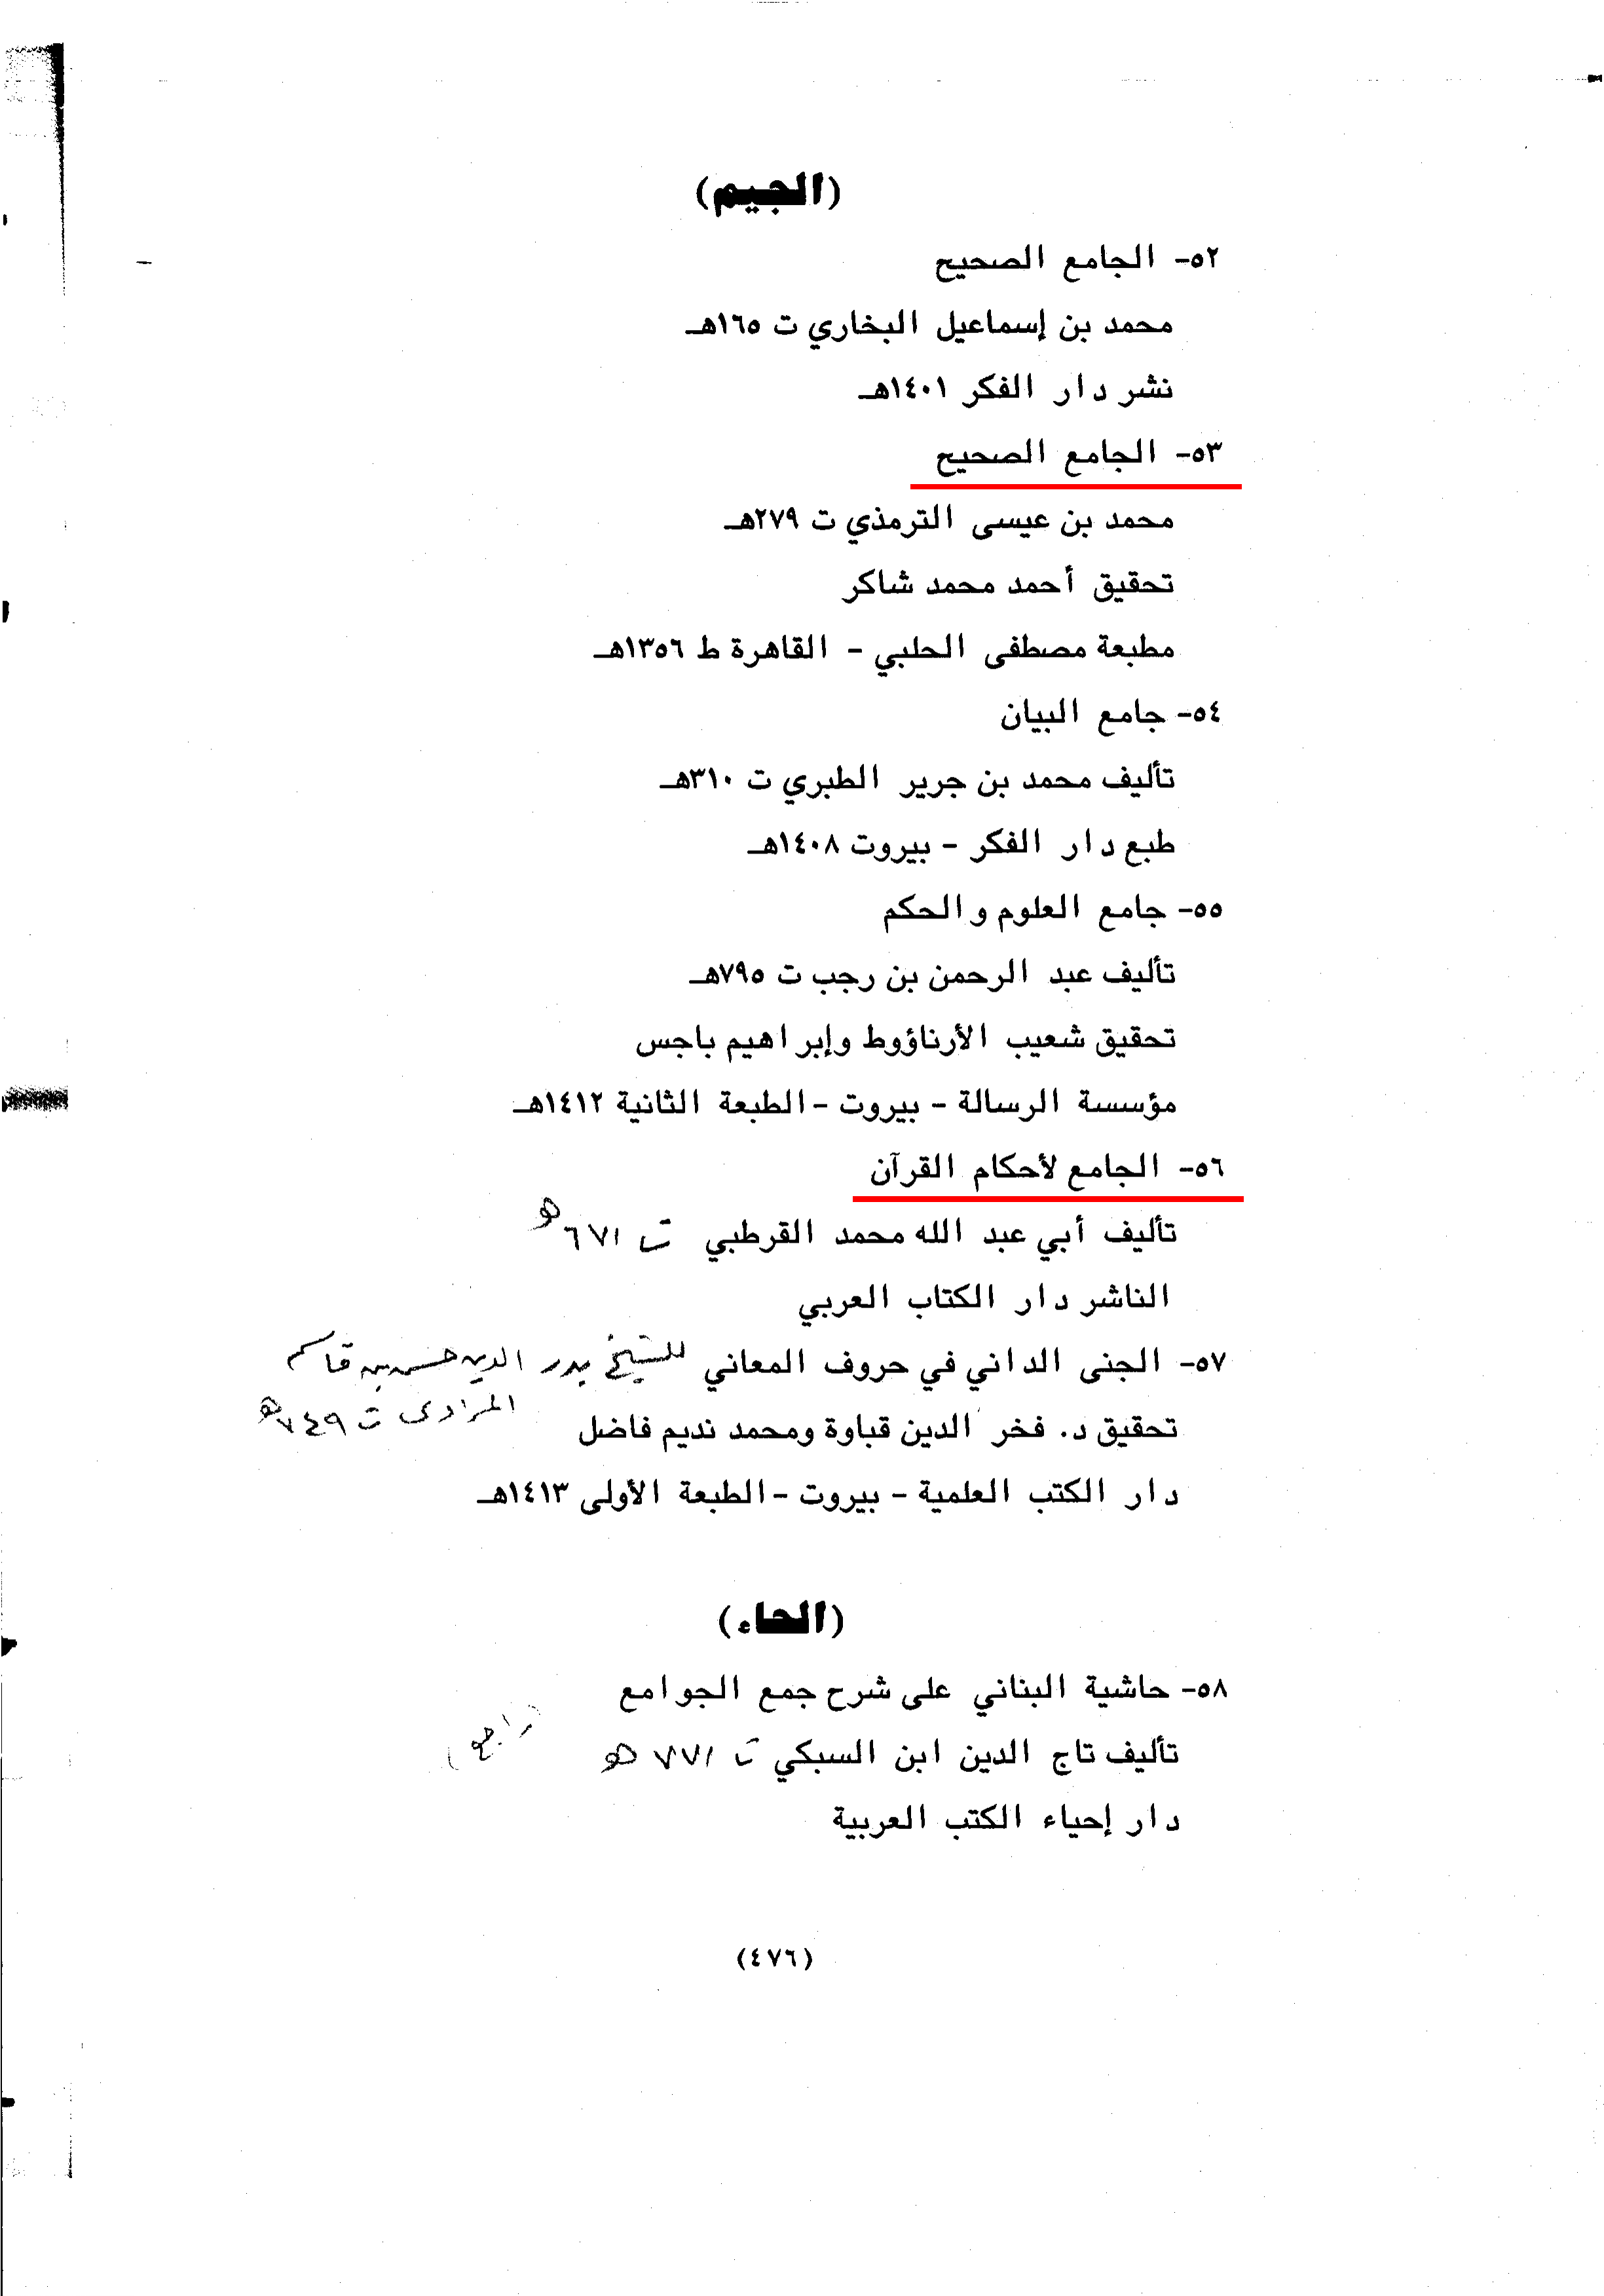 (الجيم)
٥٢- الجامع الصحيح
محمد بن إسماعيل البخاري ت ١٦٥هـ
نشر دار الفكر ١٤٠١هـ
٥٣- الجامع الصحيح
محمد بن عيسى الترمذي ت ٢٧٩هـ
تحقيق أحمد محمد شاكر
مطبعة مصطفى الحلبي - القاهرة ط ١٣٥٦هـ
٥٤- جامع البيان
تأليف محمد بن جرير الطبري ت ٣١٠هـ
طبع دار الفكر - بيروت ١٤٠٨هـ
٥٥- جامع العلوم والحكم
تأليف عبد الرحمن بن رجب ت ٧٩٥هـ
تحقيق شعيب الأرناؤوط وإبراهيم باجس
مؤسسة الرسالة - بيروت - الطبعة الثانية ١٤١٢هـ
٥٦- الجامع لأحكام القرآن
تأليف أبي عبد الله محمد القرطبي ت ٦٧١هـ
الناشر دار الكتاب العربي
٥٧- الجنى الداني في حروف المعاني للشيخ بدر الدين حسن بن قاسم
المرادى ت ٧٤٩هـ
تحقيق د. فخر الدين قباوة ومحمد نديم فاضل
دار الكتب العلمية - بيروت - الطبعة الأولى ١٤١٣هـ
(الحاء)
٥٨- حاشية البناني على شرح جمع الجوامع
تأليف تاج الدين ابن السبكي ت ٧٧١ هـ
(راجع)
دار إحياء الكتب العربية
(٤٧٦)